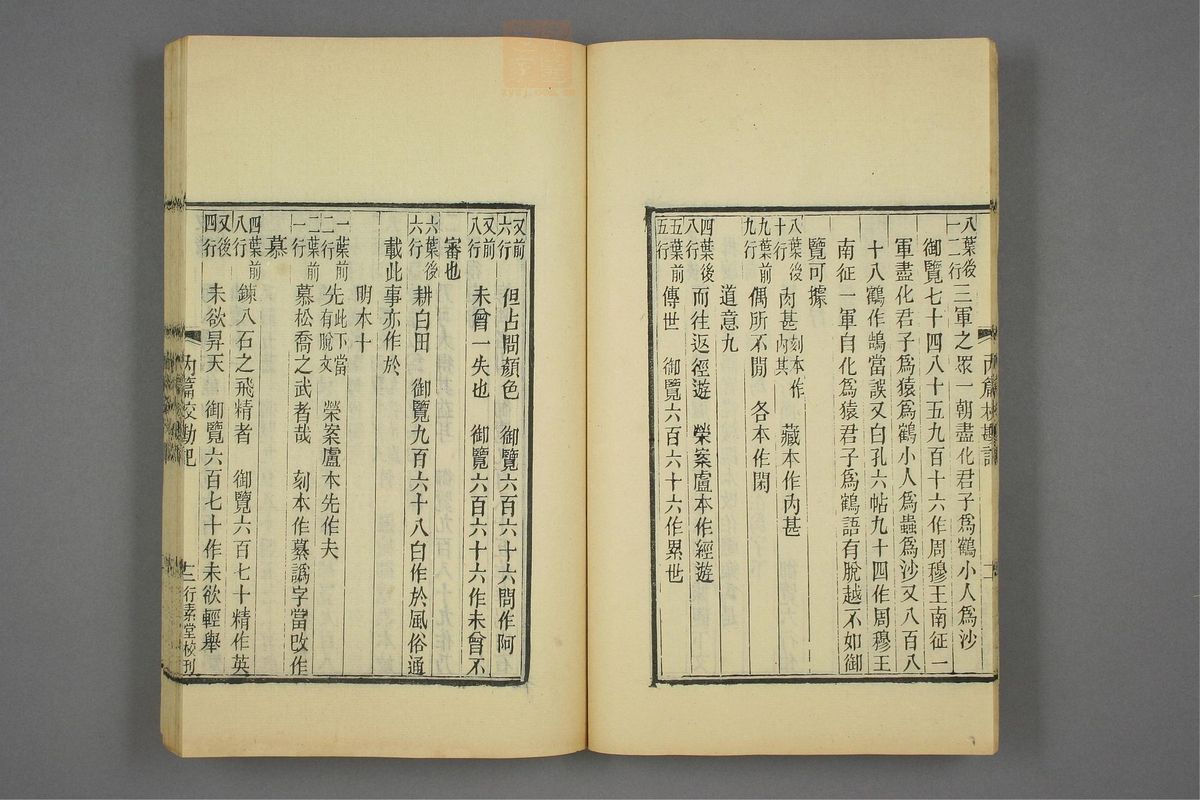 八葉後一二行三軍之眾一朝盡化君子爲鶴小人爲沙
御覽七十四八十五九百十六作周穆王南征一
軍盡化君子爲猿爲鶴小人爲蟲爲沙又八百八
十八鶴作鵠當誤又白孔六帖九十四作周穆王
南征一軍自化爲猿君子爲鶴語有脫越不如御
覽可據
八葉後十行 内甚刻本作内其 藏本作内甚
九葉前九行 偶所不閒 各本作閑
道意九
四葉後八行 而往返徑遊 榮案盧本作經遊
五葉前五行 傳世 御覽六百六十六作累世
内篇校勘記
二
又前六行 但占問顏色 御覽六百六十六問作阿
又前八行 未曾一失也 御覽六百六十六作未曾不
審也
六葉後六行 耕白田 御覽九百六十八白作於風俗通
載此事亦作於
明本十
一葉前二行 先此下當先有脫文 榮案盧本先作夫
二葉前一行 慕松喬之武者哉 刻本作纂譌字當改作
慕
四葉前八行 鍊八石之飛精者 御覽六百七十精作英
又後四行 未欲昇天 御覽六百七十作未欲輕舉
内篇校勘記
二
行素堂校刊